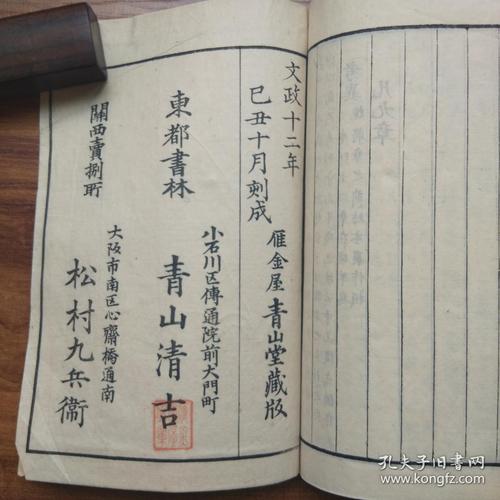 文政十二年
己丑十月刻成
雁金屋 青山堂藏版
東都書林
小石川区傳通院前大門町
青山清吉
關西賣捌所
大阪市南区心齋橋通南
松村九兵衞
孔夫子旧书网
www.kongfz.com